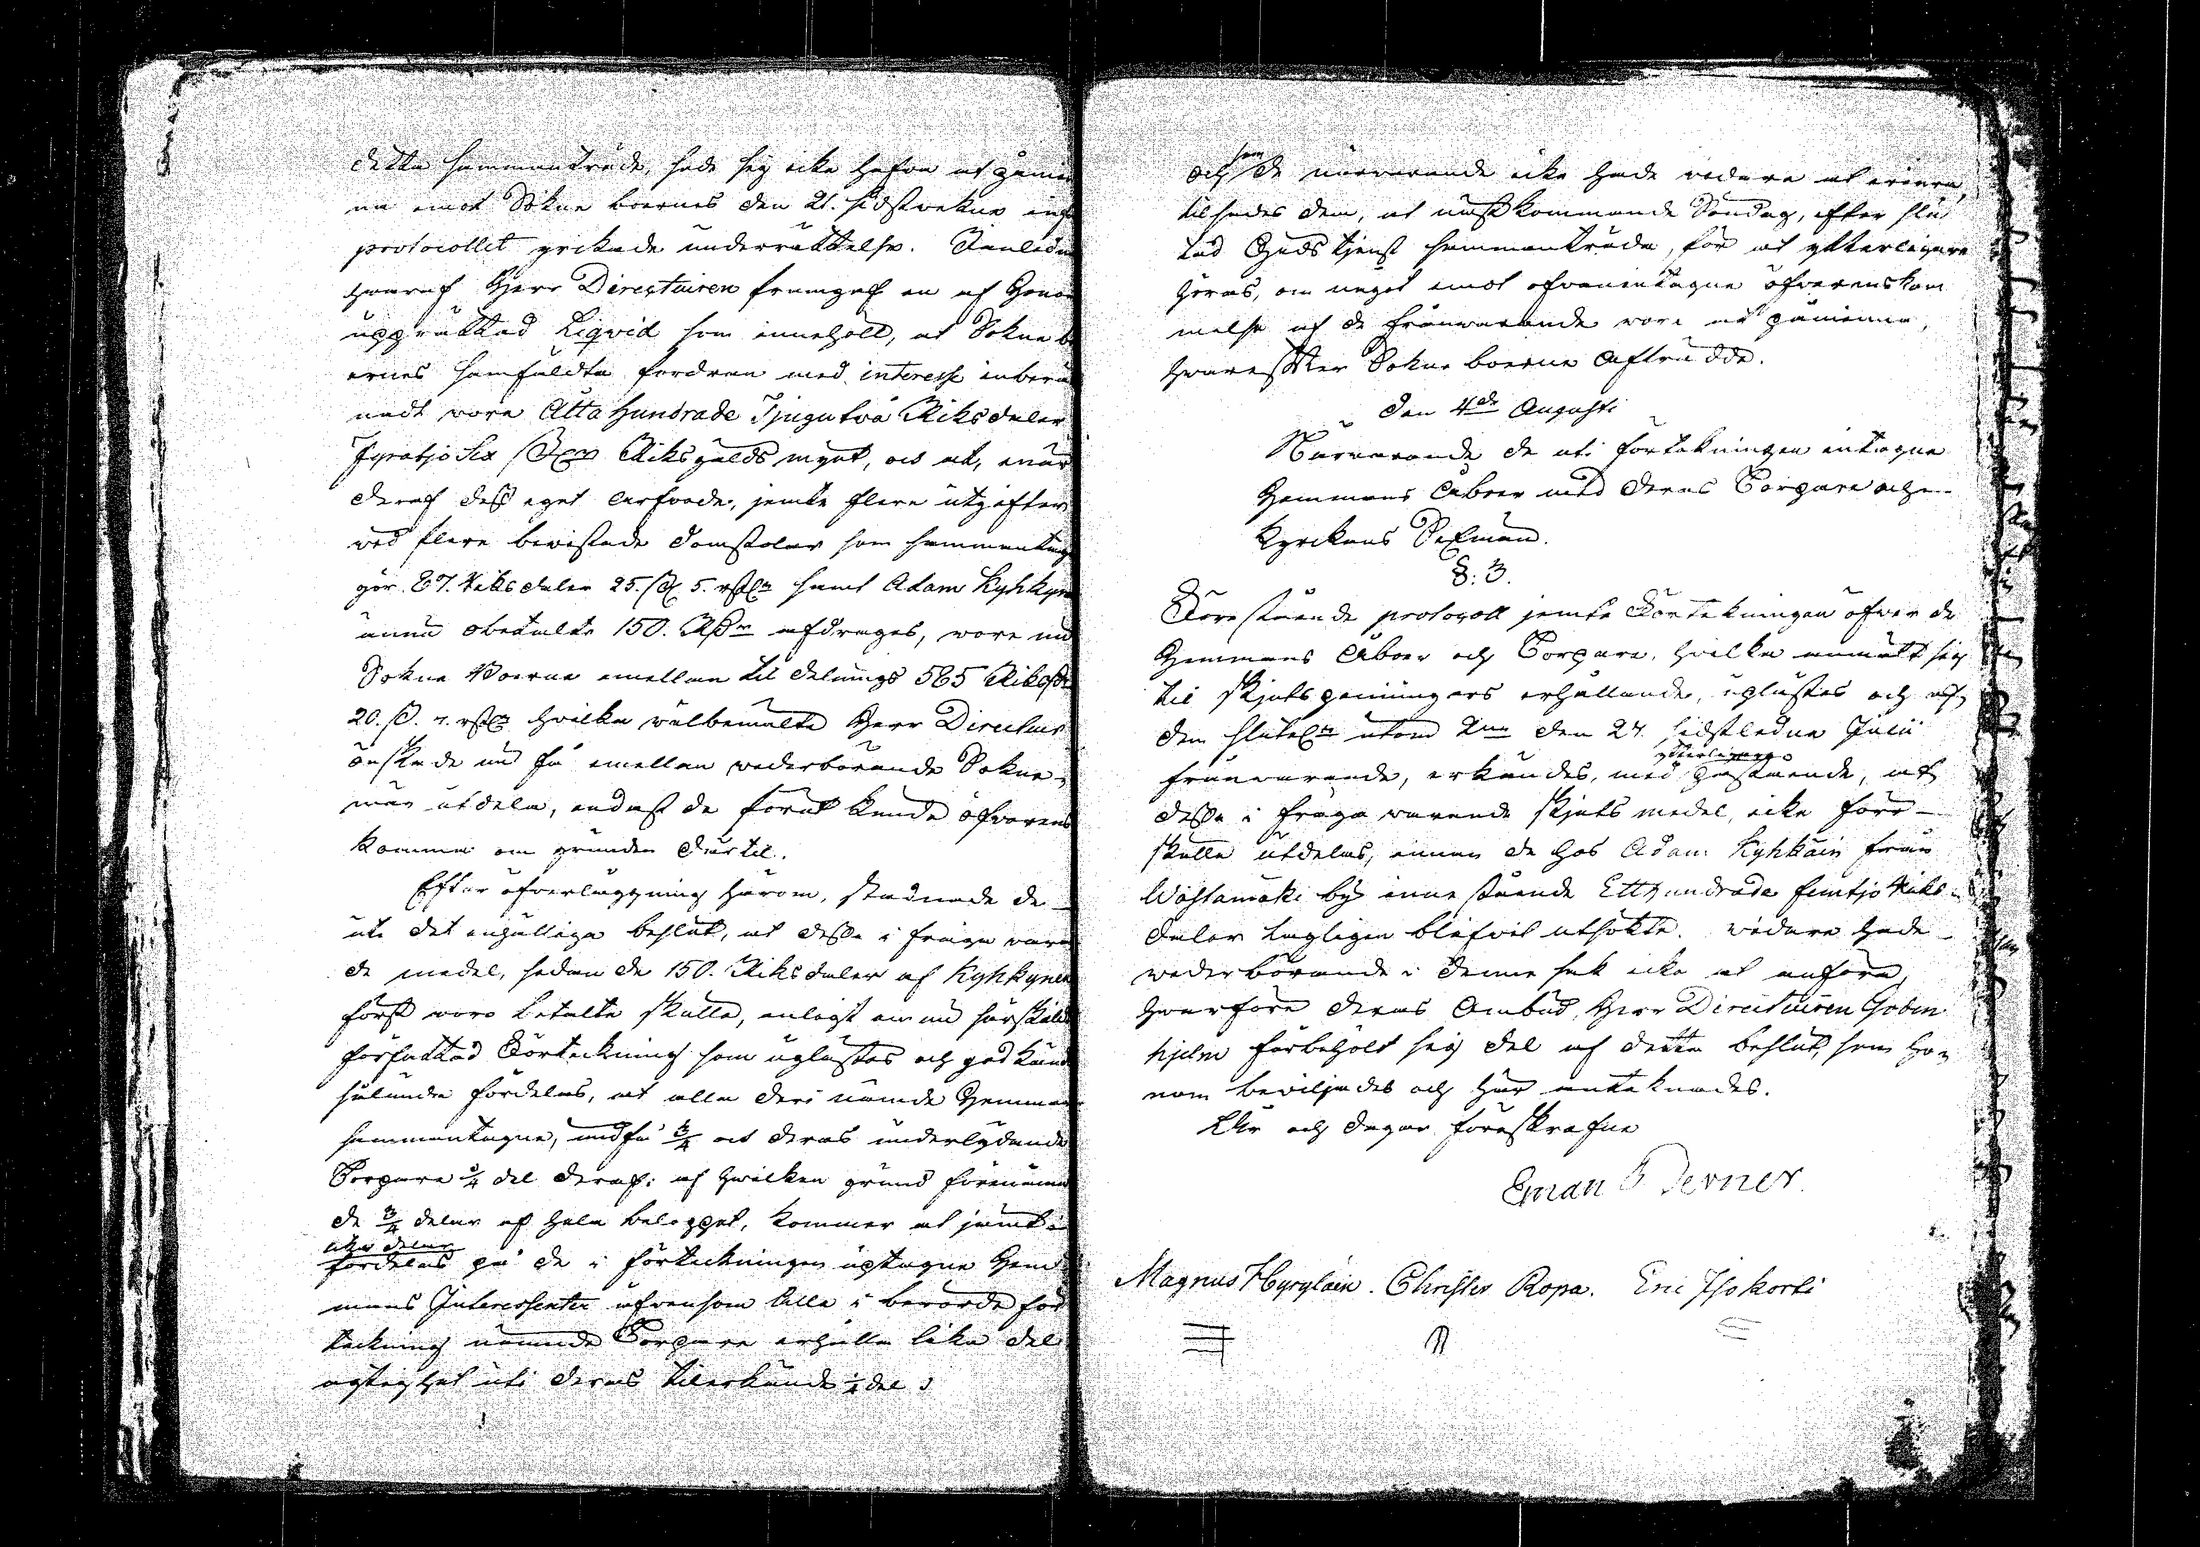 detta sammanträde, sade sig icke hafva at påmin
na emot Sokne boernes den 21. sidstvekne
protocollet yrkade underrättelse. Anledn
hvaraf Herr Directeuren framgaf en af Honom
upprättad Liqvid som innehöll, at Sokne bo
ernes samfäldta fordran med interesse inberä
nadt vore Åtta Hundrade Tjugutvå Riksdaler
Fyratjo Sex Riksgälds mynt, och at, enär
deraf dess eget arfvode, jemte flere utgifter
ved flere bevistade domstolar som sammantag
gör 87. Riksdaler 25. s. 5. rst. samt Adam Kyhkyn
ännu obetalte 150. Rdr afdrages, vore nu
Sokne Boerne emellan til delnings 585 Riksd
20. s. 7. rst. hvilka välbemälte Herr Directeur
önskade nu få emellan vederbörande Sokne
män utdela, endast de förut kunde öfverens
komma om grunden dertil.
Efter öfverläggning härom, stadnade de
uti det enhälliga beslut, at desse i fråga varan
de medel, sedan de 150. Riksdaler af Kyhkynen
först voro betalte skulle, enligt en nu särskildt
författad Förteckning som uplästes och godkänd
sålunda fördelas, at alla deri nämde Hemman
sammantagne, undfå 3/4 at deras underlydande
Torpare 1/4 del deraf: af hvilken grund förenämn
de 3/4 delar af hela beloppet, kommer at jemt i
lika delar
fördelas på de i förteckningen uptagne Hem
mans Interessenter äfvensom alla i berörde för
teckning nämnde Torpare erhålla lika del
agtighet uti deras tilerkände 1/4 del
som
och de närvarande icke hade vidare at erinra,
tilsades dem, at nästkommande Söndag, efter slu
tad Gudstjenst sammanträda, för at ytterligare
höras, om något emot ofvanintagne öfverenskom
melse af de frånvarande vore at påminna,
hvarefter Sokne boerne Afträdde.
Den 4de Augusti
Närvarande de uti förtekningen intagne
Hemmans Åboer med deras Torpare och
Kyrckans Sexmän.
§: 3.
Förestående protocoll jemte Förtekningen öfver de
Hemmans Åboer och Torpare, hvilka anmält sig
til skjutspenningars erhållande, uplästes och af
dem utom den 27. sidstledne Julii
ytterligare
frånvarande, erkändes, med påstående, at
desse i fråga varande skjuts medel, icke förr
skulle utdelas, innan de hos Adam Kyhkäin från
Wåhtamäki by inne stående Etthundrade femtjo Riks
daler lagligen blifvit utsökte. vidare hade
vederbörande i denne sak icke at anföra,
hvarföre deras Ombud, Herr Directeuren Goben
hjelm förbehölt sig del af detta beslut, som ho
nom beviljades och här antecknades.
Uts och dagar föreskrefne
Eman Berner
Magnus Hyryläin. Christer Ropa. Eric Isokorti